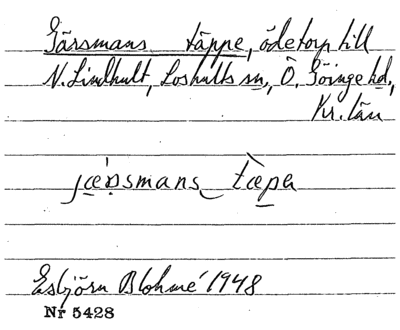 Gärsmans täppe, ödetorp till
N. Lindhult, Loshults sn, Ö. Göinge hd,
Kr. län
jæ̀ʀsmans‿tæpa
Esbjörn Blohmé 1948
Nr 5428